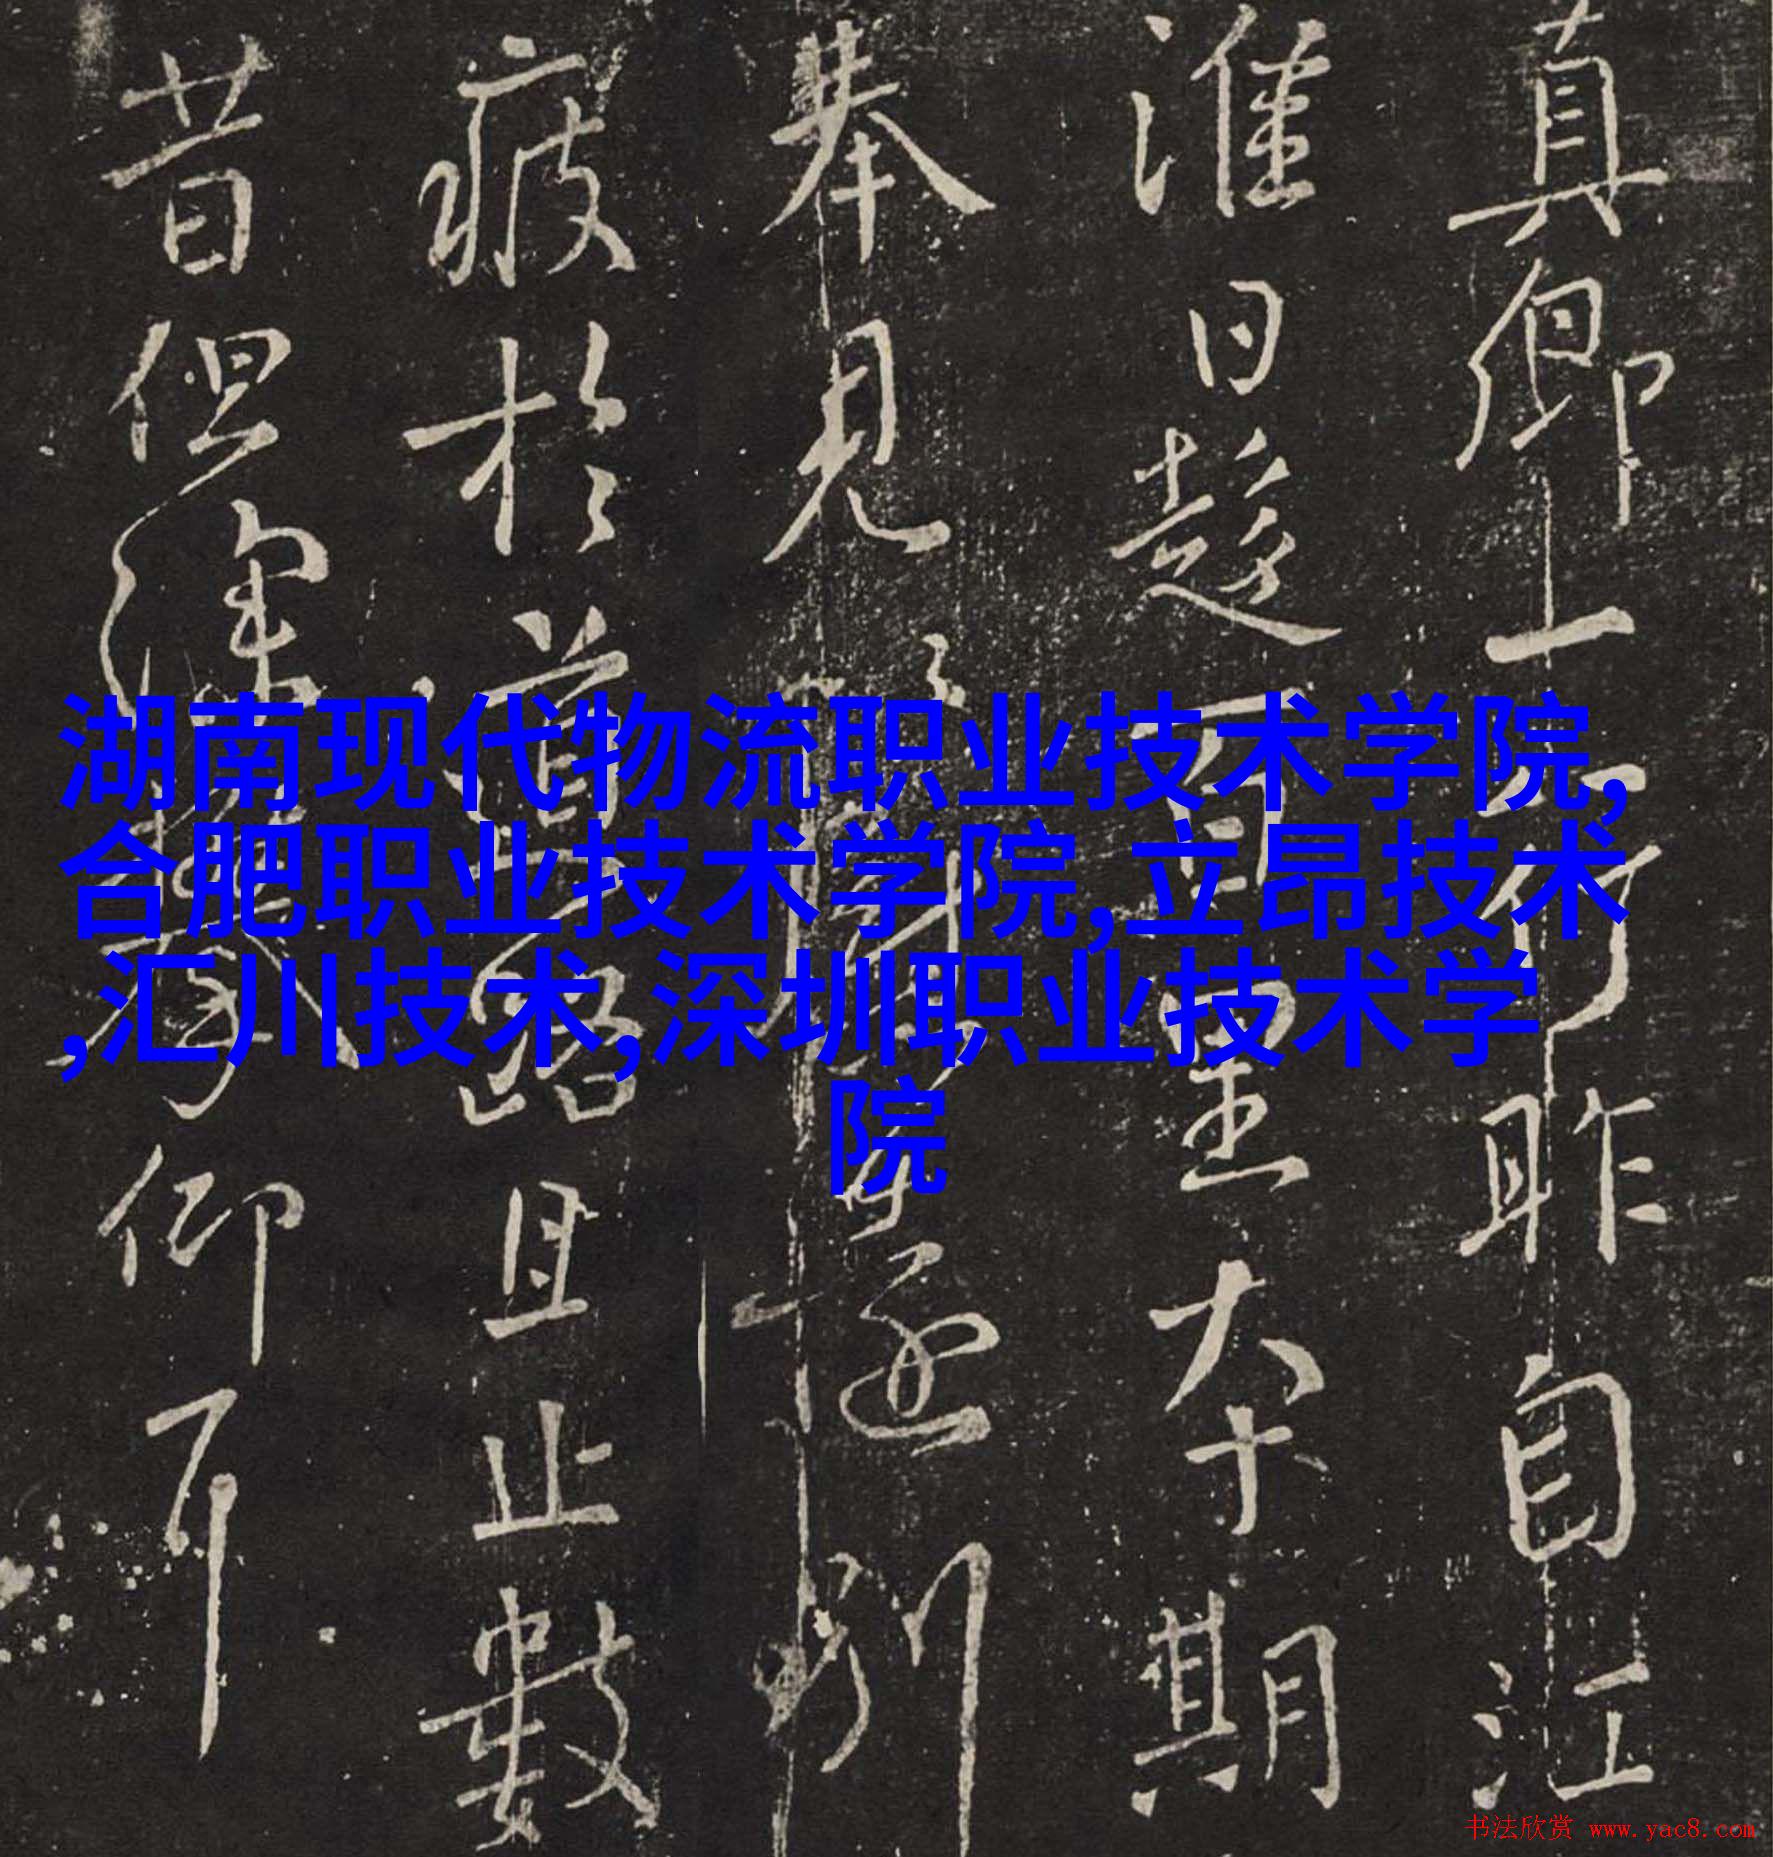 真卿上行昨自江
淮日趍百里本期
奉見別
疲於道路且止數
昔但深仰耳
湖南现代物流职业技术学院,
合肥职业技术学院,立昂技术
,汇川技术,深圳职业技术学
院
书法欣赏 www.yac8.com